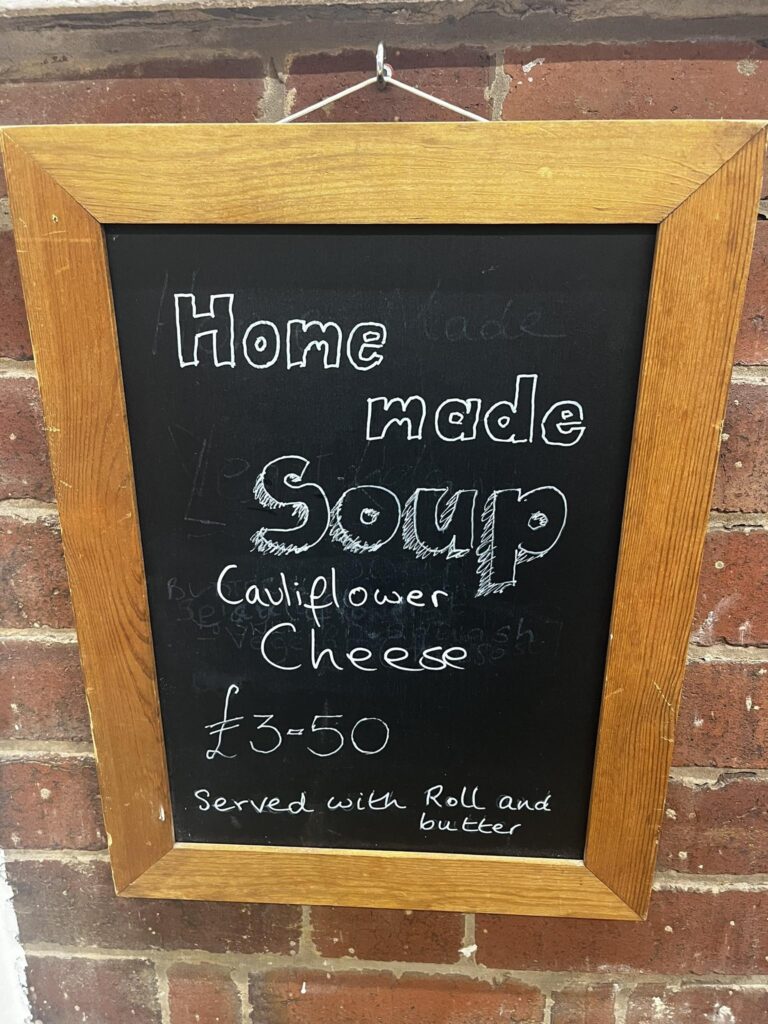 Home
made
Soup
Cauliflower
Cheese
£3-50
Served with Roll and
butter